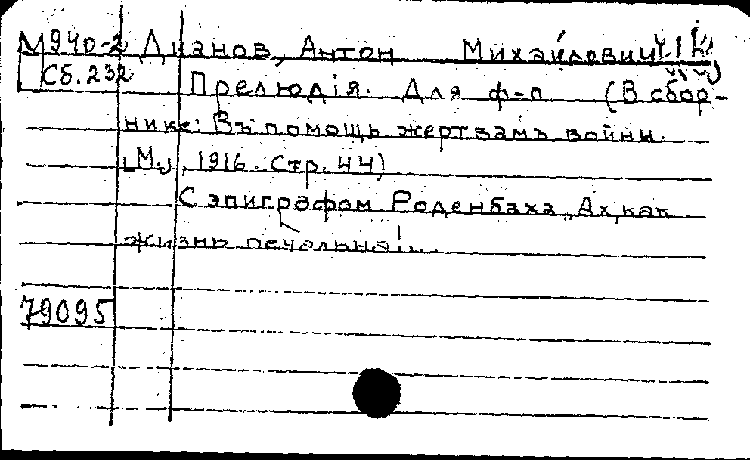 М940-2 Дианов, Антон Михайлович
Сб.232 Прелюдія. Для ф-п (В сбор-
нике: Въ помощь жертвамъ войны.
[М.], 1916. Стр. 44)
С эпиграфом Роденбаха „Ах, как
жизнь печальна!..
79095